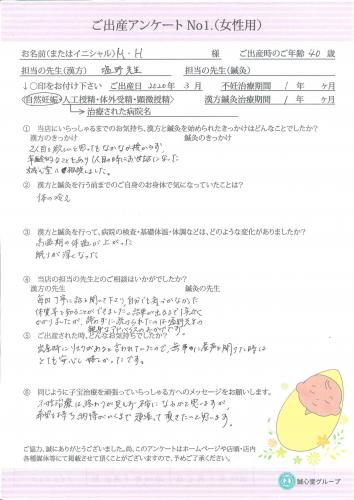 ご出産アンケート No1.(女性用)
お名前(またはイニシャル) M・H 様 ご出産時のご年齢 40 歳
担当の先生(漢方) 塩野先生 担当の先生(鍼灸)
↓〇印をお付け下さい ご出産日 2020年 3月 不妊治療期間 / 年 ヶ月
自然妊娠・人工授精・体外受精・顕微授精 漢方鍼灸治療期間 1 年 ヶ月
治療された病院名
① 当店にいらっしゃるまでのお気持ち、漢方と鍼灸を始められたきっかけはどんなことでしたか?
漢方のきっかけ 鍼灸のきっかけ
2人目を欲しいと思ってもなかなか授からず、
年齢的なこともあり1人目の時にお世話になった
誠心堂へ相談しました。
② 漢方と鍼灸を行う前までのご自身のお身体で気になっていたことは?
体の冷え
③ 漢方と鍼灸を行って、病院の検査・基礎体温・体調などは、どのような変化がありましたか?
高温期の体温が上がった
眠りが深くなった
④ 当店の担当の先生とのご相談はいかがでしたか?
漢方の先生 鍼灸の先生
毎回丁寧に話を聞いて下さり、自分でも気づかなかった
体質等を知ることができました。結果が出るまで1年近く
かかりましたが、諦めずに続けられたのは塩野先生の
親身なアドバイスのおかげです。
⑤ ご出産された時、どんなお気持ちでしたか?
出産時にリスクがあると言われていたので、無事に産声を聞けた時は
とても安心し嬉しかったです。
⑥ 同じように子宝治療を頑張っていらっしゃる方へのメッセージをお願いします。
不妊治療は終わりが見えず不安になるかと思いますが、
希望を持ち納得がいくまで頑張って頂きたいと思います。
ご協力、誠にありがとうございました。尚、このアンケートはホームページや店頭・店内
各種媒体等にて掲載させて頂くことがございますので、予めご了承ください。
誠心堂グループ